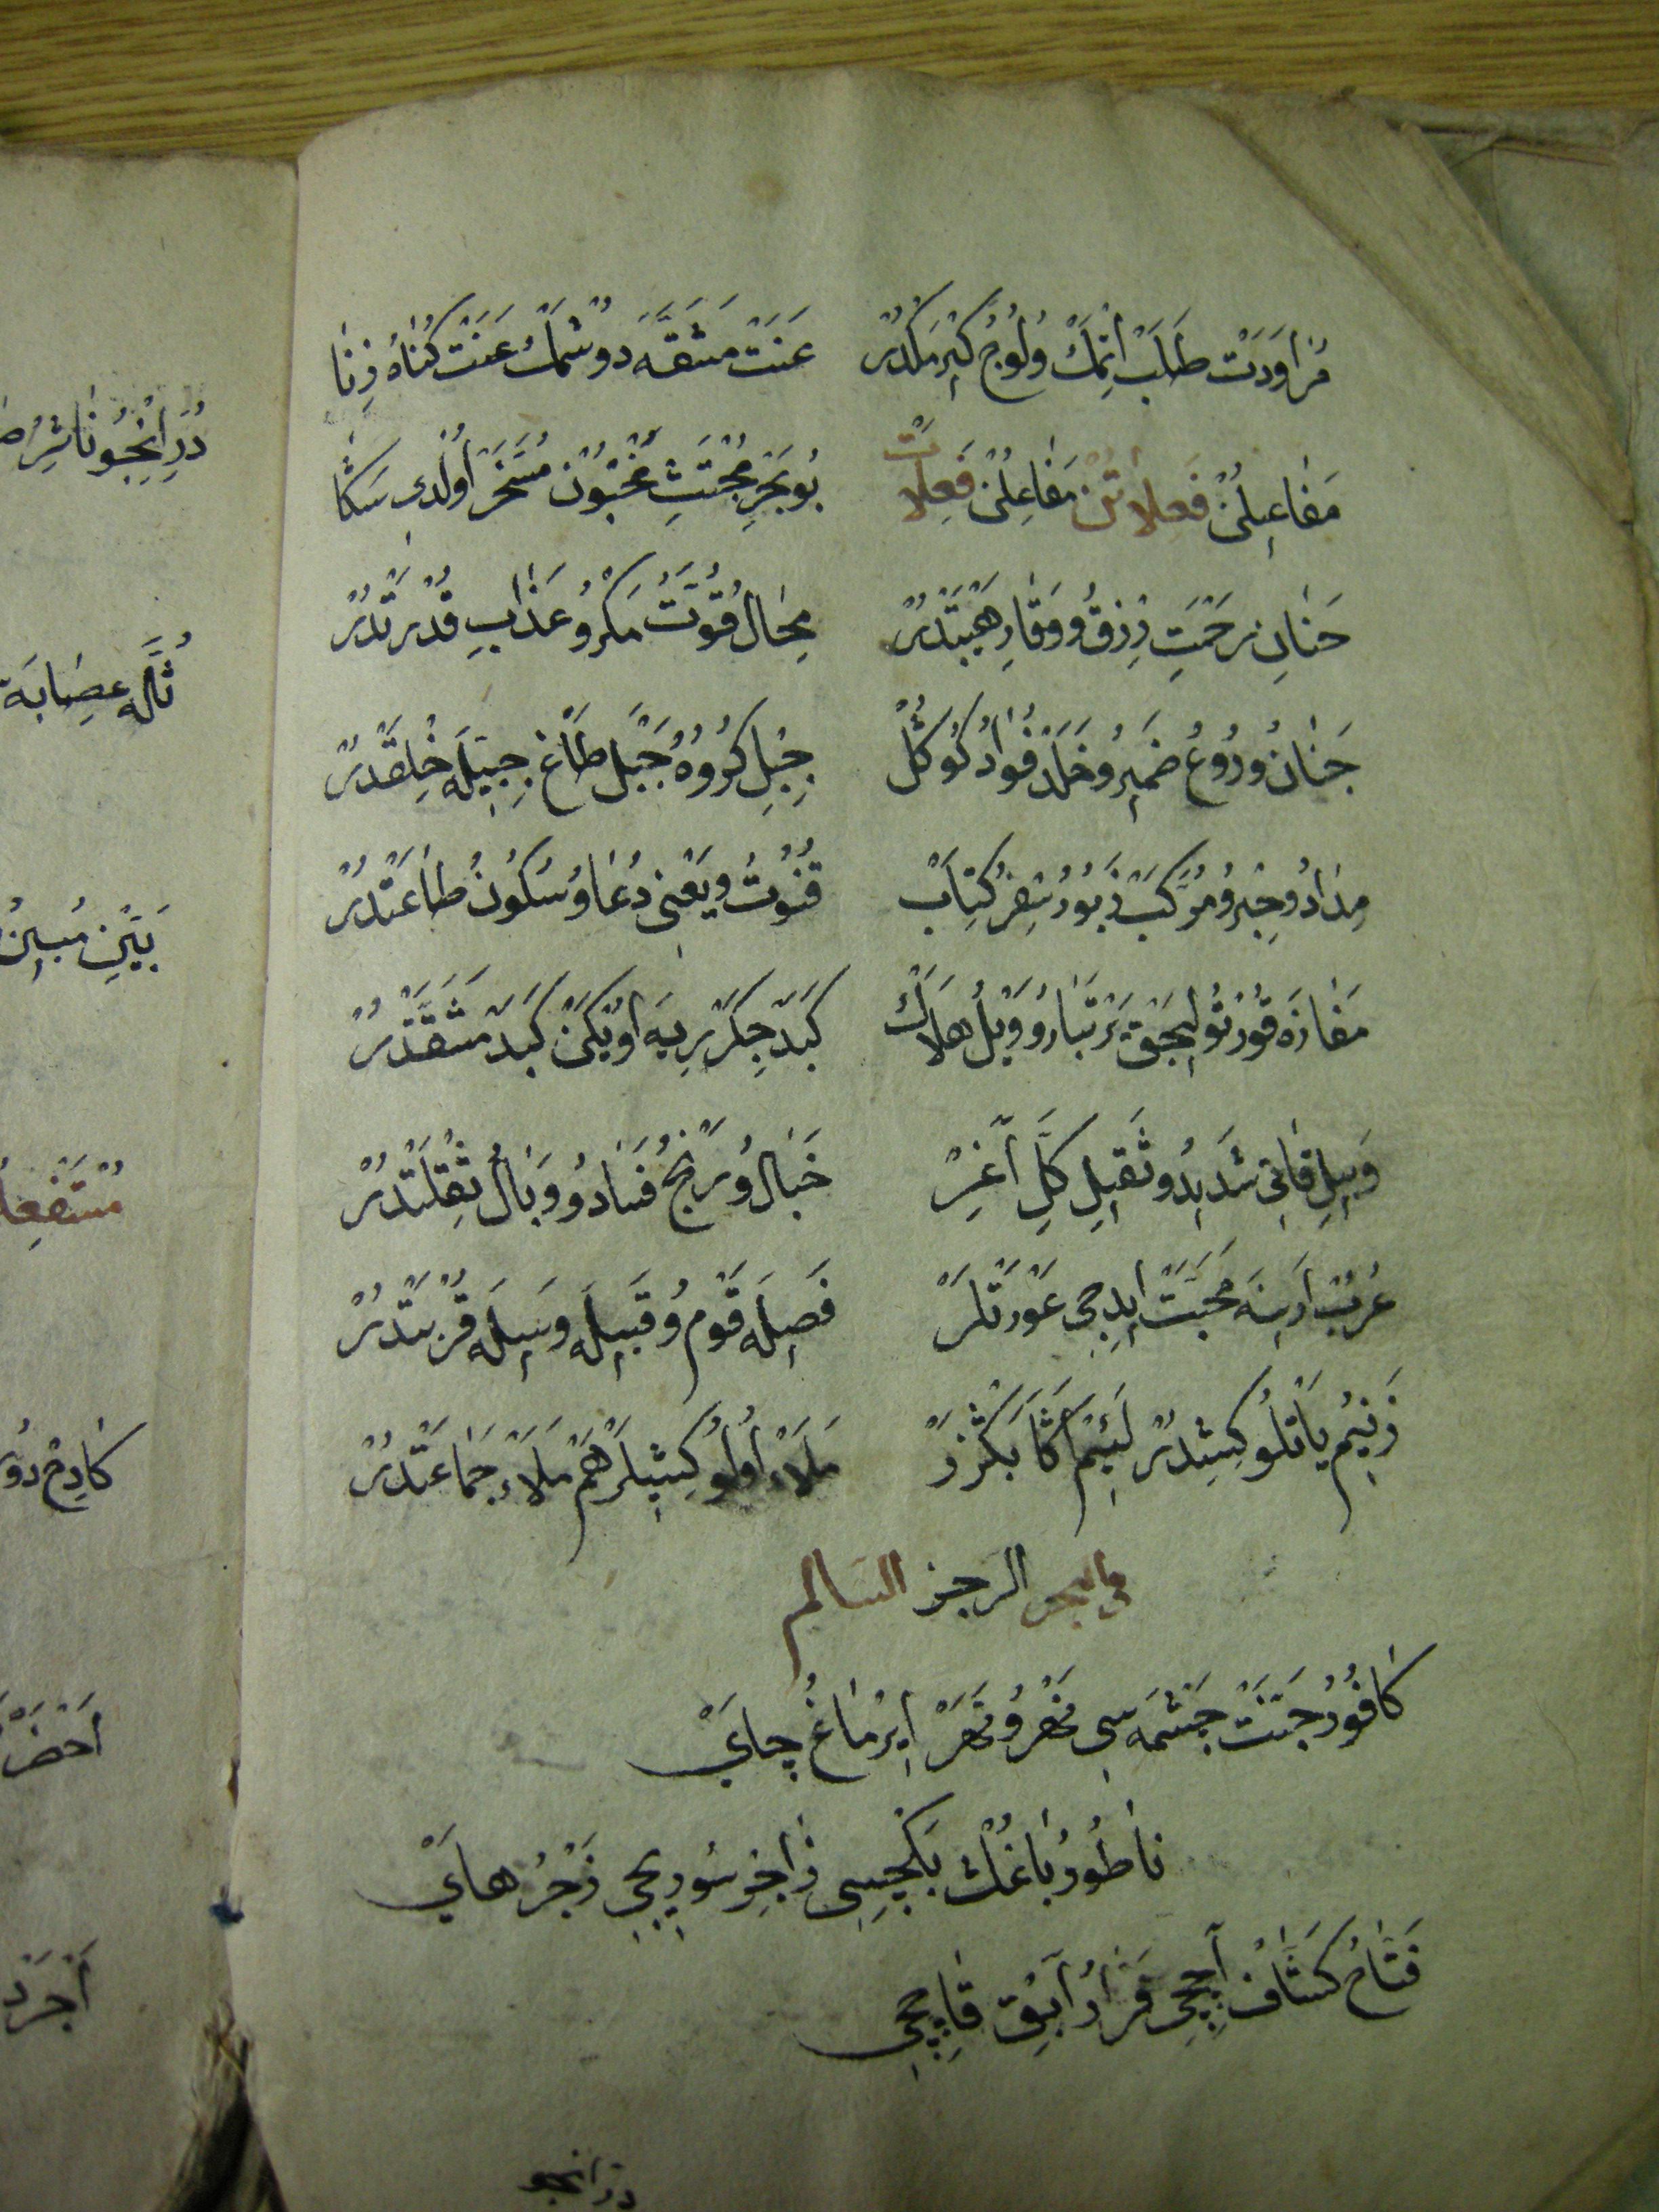 مُرَاوَدَتْ طَلَبْ اتْمَكْ وُلُوجُ كِيرْمَكْدُرْ عَنَتْ مَشَقَّه دَوُشْمَكْ عَنَتْ كُنَاهُ زِنَا
مَفَاعِيلُنْ فَعِلَاتُنْ مَفَاعِلُنْ فَعِلَاتْ بُوبَحْرِ مُجْتَثِ مَخْبُونْ مُسَخَّرْ اُولْدِى سَكَا
حَنَانِ رَحْمَتِ رِزْقُ وَوَقَارِ هَيْبَتْدُرْ مِحَالِ قُوَّتُ مَكْرُ عَذَابِ قُدْرَتْدُرْ
جَنَانُ ورُوعُ ضَمِيرُ وخَلَدْ فُوَادُ كُوكُلْ جِبْلِ كُرُوهُ جَبَلْ طَاغْ جِبِلَّه خِلْقَدُرْ
مِدَادُ وحِبْرُ مُرَكَّبْ زَبُورُ سِفْرُ كِتَابْ قُنُوتُ ويَعْنِى دُعَاوُ سُكُونُ طَاعَتْدُرْ
مَفَازَه قُورْتُولِيجَقْ يَرْ تَبَارُ وَيْلُ هلَاكْ كَبِدْ جِكَرْ رِيَه اُويْكَنْ كَبَدْ مَشَقَّتْدُرْ
وَبِيلِ قَانِى شَدِيدُ وثَقِيلِ كَلِّ آغِرْ خَبَالُ ورَنْجُ فَسَادُ ووَبَالْ ثِقْلَتْدُرْ
عُرُبْ اَرِينَه مَحَبَّتْ اِيدِجِى عَوْرَتْلَرْ فَصِيلَه قَوْم وُ قَبِيلَه وَسِيلَه قُرْبَتْدُرْ
زَنِيمْ يَاتْلُو كِشِدُرْ لَئِيمْ اكَا بَكْزَرْ مَلَأْ اُولُو كِشِيلَرْ هَمْ مَلَأْ جَمَاعَتْدُرْ
فى البحر الرجز السالم
كَافُورُ جَنَّتْ چَشْمَه سِى نَهْرُ ونَهَرْ اِيرْمَاغُ چَاىْ
نَاطُورُ بَاغُكْ بَكْچِسِى زَاجِرْ سُورِيجِى زَجْرُ هاىْ
فَتَّاحُ كَشَّافْ آچِجِى فَرَّارُ آبِقْ قَاچِجِى
درانجو
دُرِ اِنْجُو نَاشِرُ
ثُلَّه عِصَابَه
بَيِّنِ مُبِينْ
مُسْتَفْعِلُ
كَادِحْ
اَخْضَرْ
اَجْرَدْ